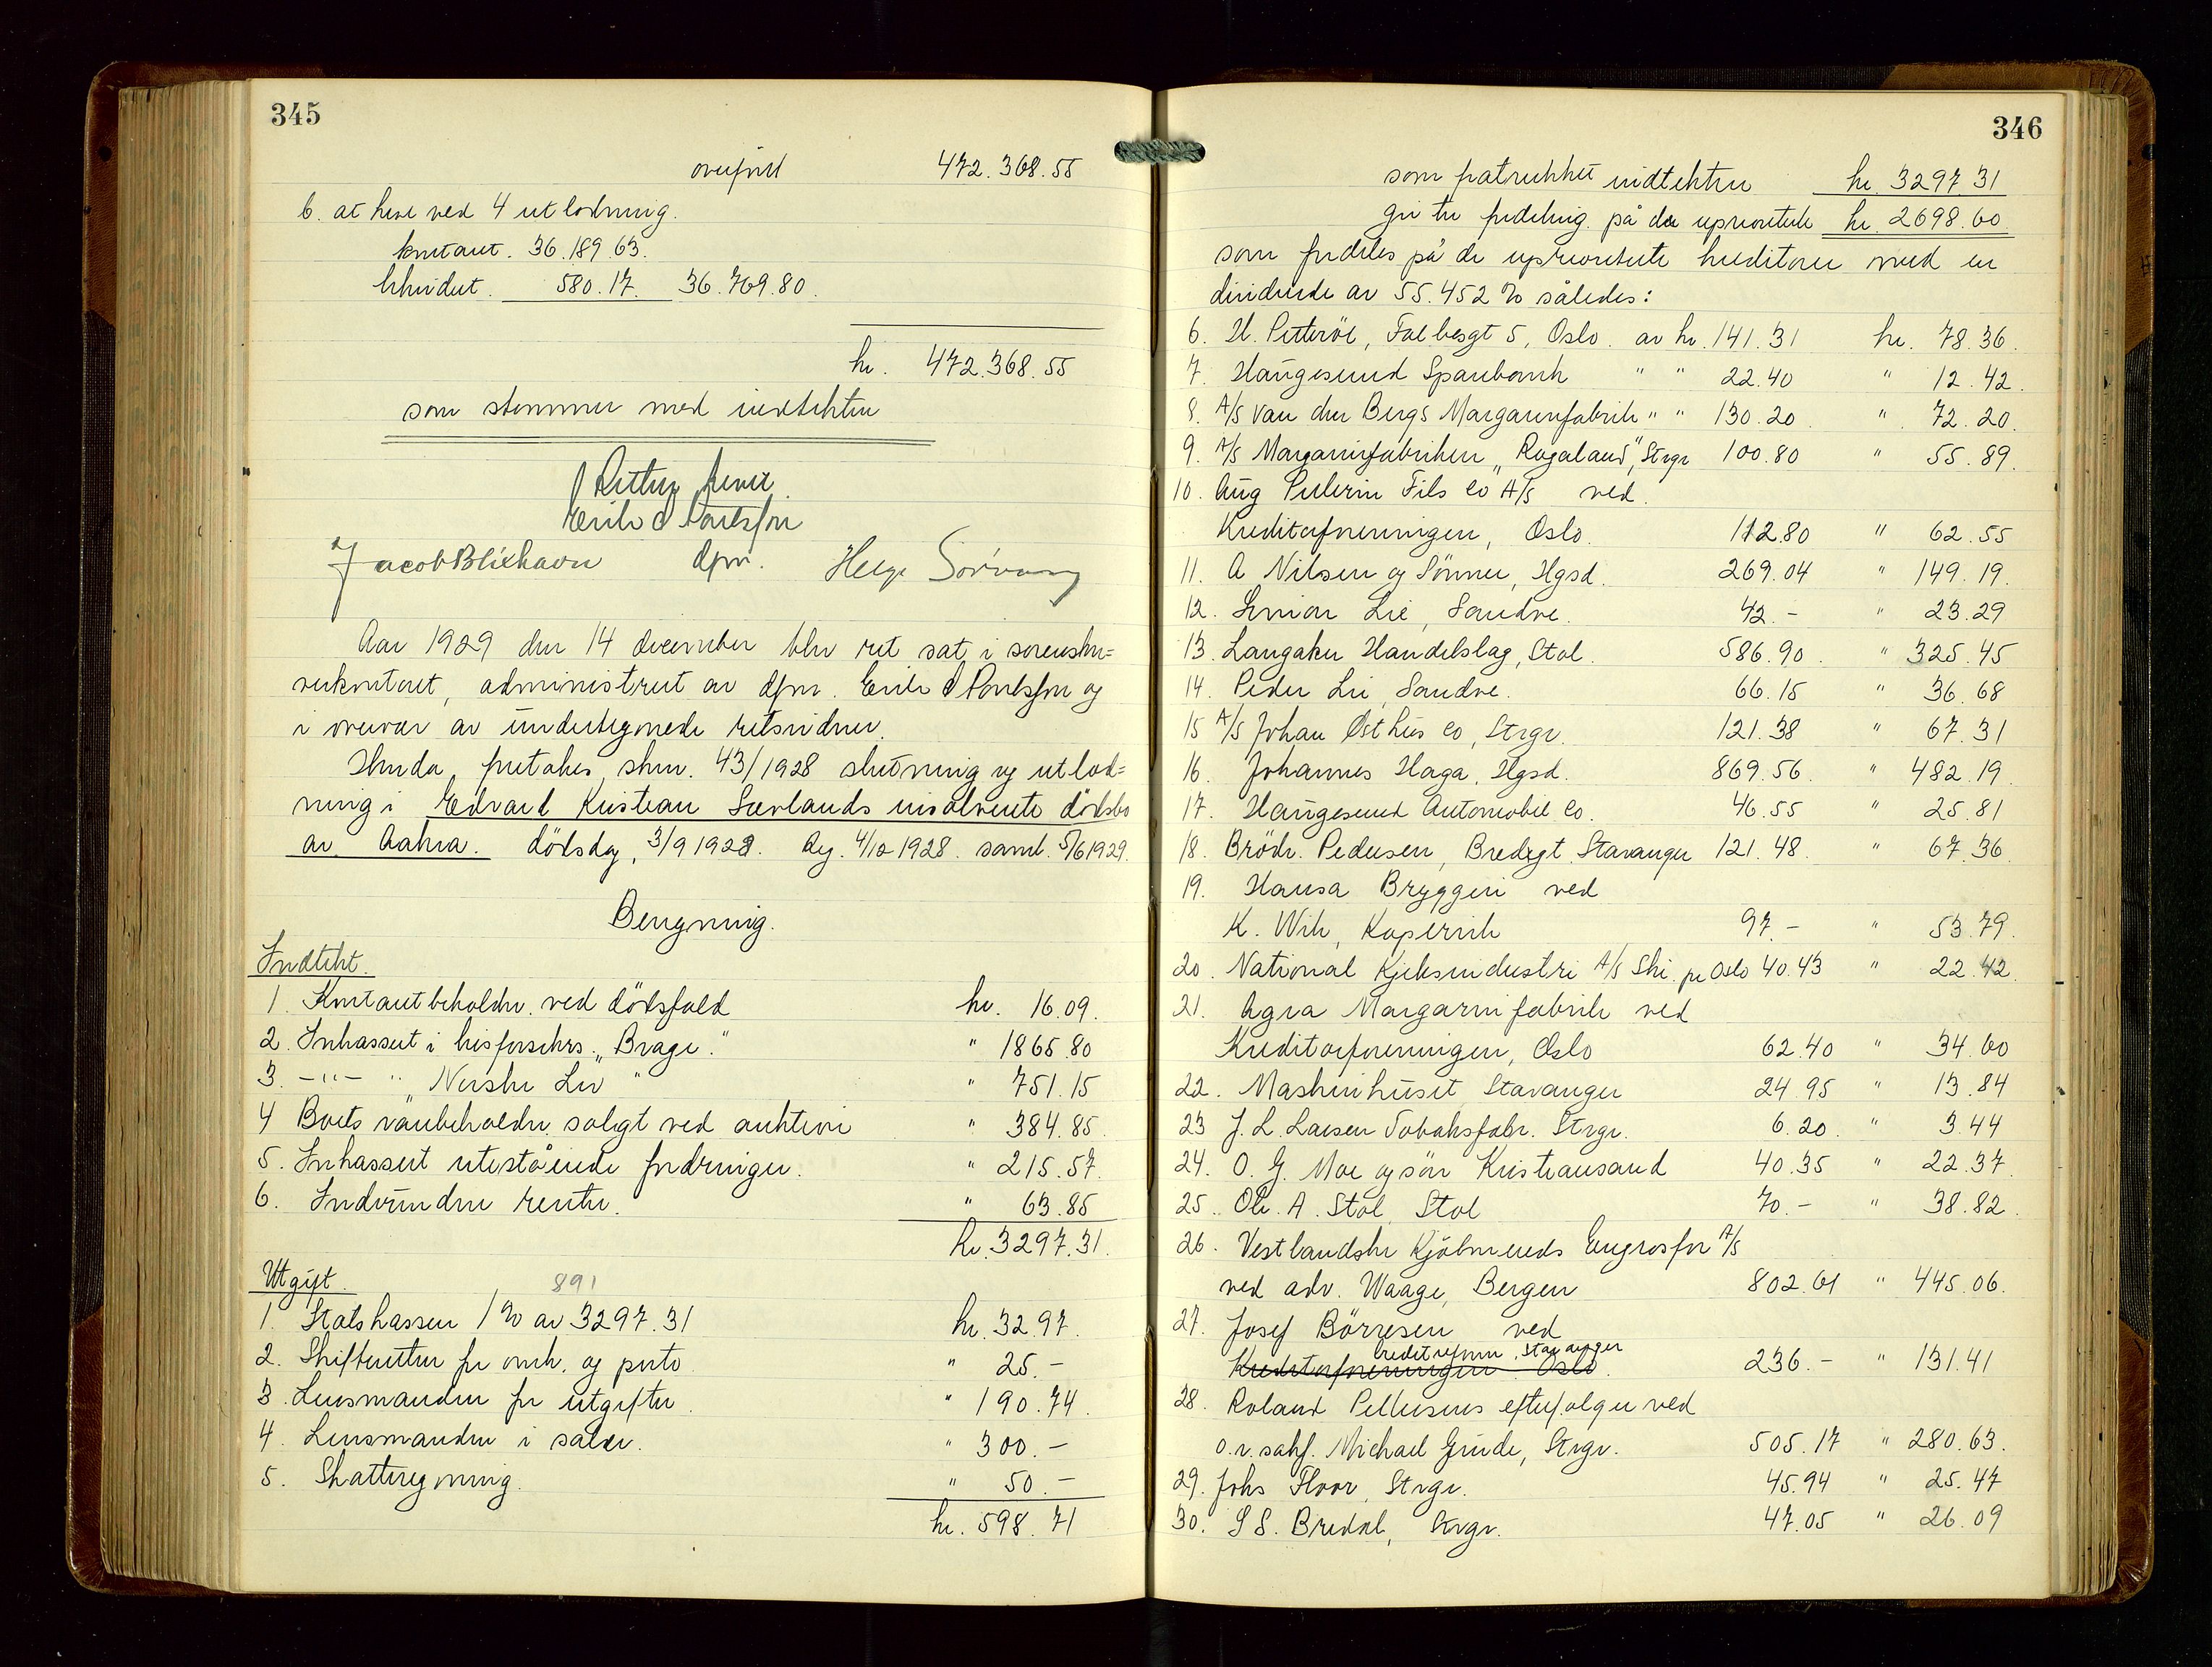 345
overført 472.368.55
6. at heve ved 4 utlodning.
kontant. 36.189.63.
580.17. 36.769.80.
kr. 472.368.55
som stemmer med indtekten
Retten hevet.
Erik C Poulsson
Jacob Blikhavn dfm. Helge Sörvaag
Aar 1929 den 14 december blev ret sat i sorenskri=
verkontoret, administrert av dfm. Erik C Poulsson og
i overvær av undertegnede retsvidner.
Hvorda foretokes skm. 43/1928 slutning og utlod=
ning i Edvard Kristian Sævlands insolvente dödsbo
av Aakra. dödsdag, 3/9 1928. Reg. 4/10 1928. saml. 5/6 1929.
Beregning.
Indtekt.
1. Kontantbeholdn. ved dödsfald kr. 16.09.
2. Inkassert i livsforsikrs. "Brage." " 1865.80
3. -"- " "Norske Liv" " 751.15
4 Boets varebeholdn. solgt ved auktion " 384.85.
5. Inkassert utestående fordringer. " 215.57.
6. Indvundne renter. " 63.85
Kr. 3297.31.
Utgift. 891
1. Statskassen 1% av 3297.31 kr. 32.97.
2. Skifteretten for omk. og porto " 25.-
3. Lensmanden for utgifter. " 190.74.
4. Lensmanden i salær. " 300.-
5. Skatteregning. " 50.-
kr. 598.71
346
som fratrukket indtekten kr. 3297 31
gir til fordeling på de upriorterte kr. 2698.60
som fordeles på de upriorterte kreditorer med en
dividende av 55.452 % således:
6. H. Petterøe, Falbesgt 5, Oslo. av kr. 141.31 kr. 78.36.
7. Haugesund Sparebank " " 22.40 " 12.42.
8. A/S van den Bergs Margarinfabrik " " 130.20 " 72.20.
9. A/S Margarinfabriken "Rogaland", Stvgr 100.80 " 55.89.
10. Aug Pellerin Fils Co A/S ved.
Kreditorforeningen, Oslo. 112.80 " 62.55
11. A Nilsen og Sönner, Hgsd. 269.04 " 149.19.
12. Lie, Sandve. 42.- " 23.29
13. Langaker Handelslag, Stol. 586.90. " 325.45
14. Peder Lie, Sandve. 66.15 " 36.68
15 A/S Johan Østhus Co, Stvgr. 121.38 " 67.31
16. Johannes Haga, Hgsd. 869.56. " 482.19.
17. Haugesund Automobil Co. 46.55 " 25.81
18. Brödr. Pedersen, Bredegt. Stavanger 121.48. " 67.36.
19. Hansa Bryggeri ved
K. Wik, Kopervik 97.- " 53.79.
20. National Kjeksindustri A/S Ski. pr Oslo 40.43 " 22.42
21. Agra Margarinfabrik ved
Kreditorforeningen, Oslo 62.40 " 34.60
22. Maskinhuset, Stavanger 24.95 " 13.84
23 J. L. Larsen Tobaksfabr. Stvgr. 6.20. " 3.44
24. O. G. Moe og sön Kristiansand 40.35 " 22.37.
25. Ole. A. Stol, Stol 70.- " 38.82.
26. Vestlandske Kjöbmænds Engrosfor A/S
ved adv. Waage, Bergen 802.61 " 445.06.
27. Josef Börresen ved
Creditreform, Stavanger
Kreditorforeningen Oslo. 236.- " 131.41
28. Roland Pettersens efterfölger ved
o.r.sakf. Michael Grude, Stvgr. 505.17 " 280.63.
29. Johs Floor, Stvgr. 45.94 " 25.47
30. S S. Bredal, Stvgr. 47.05 " 26.09